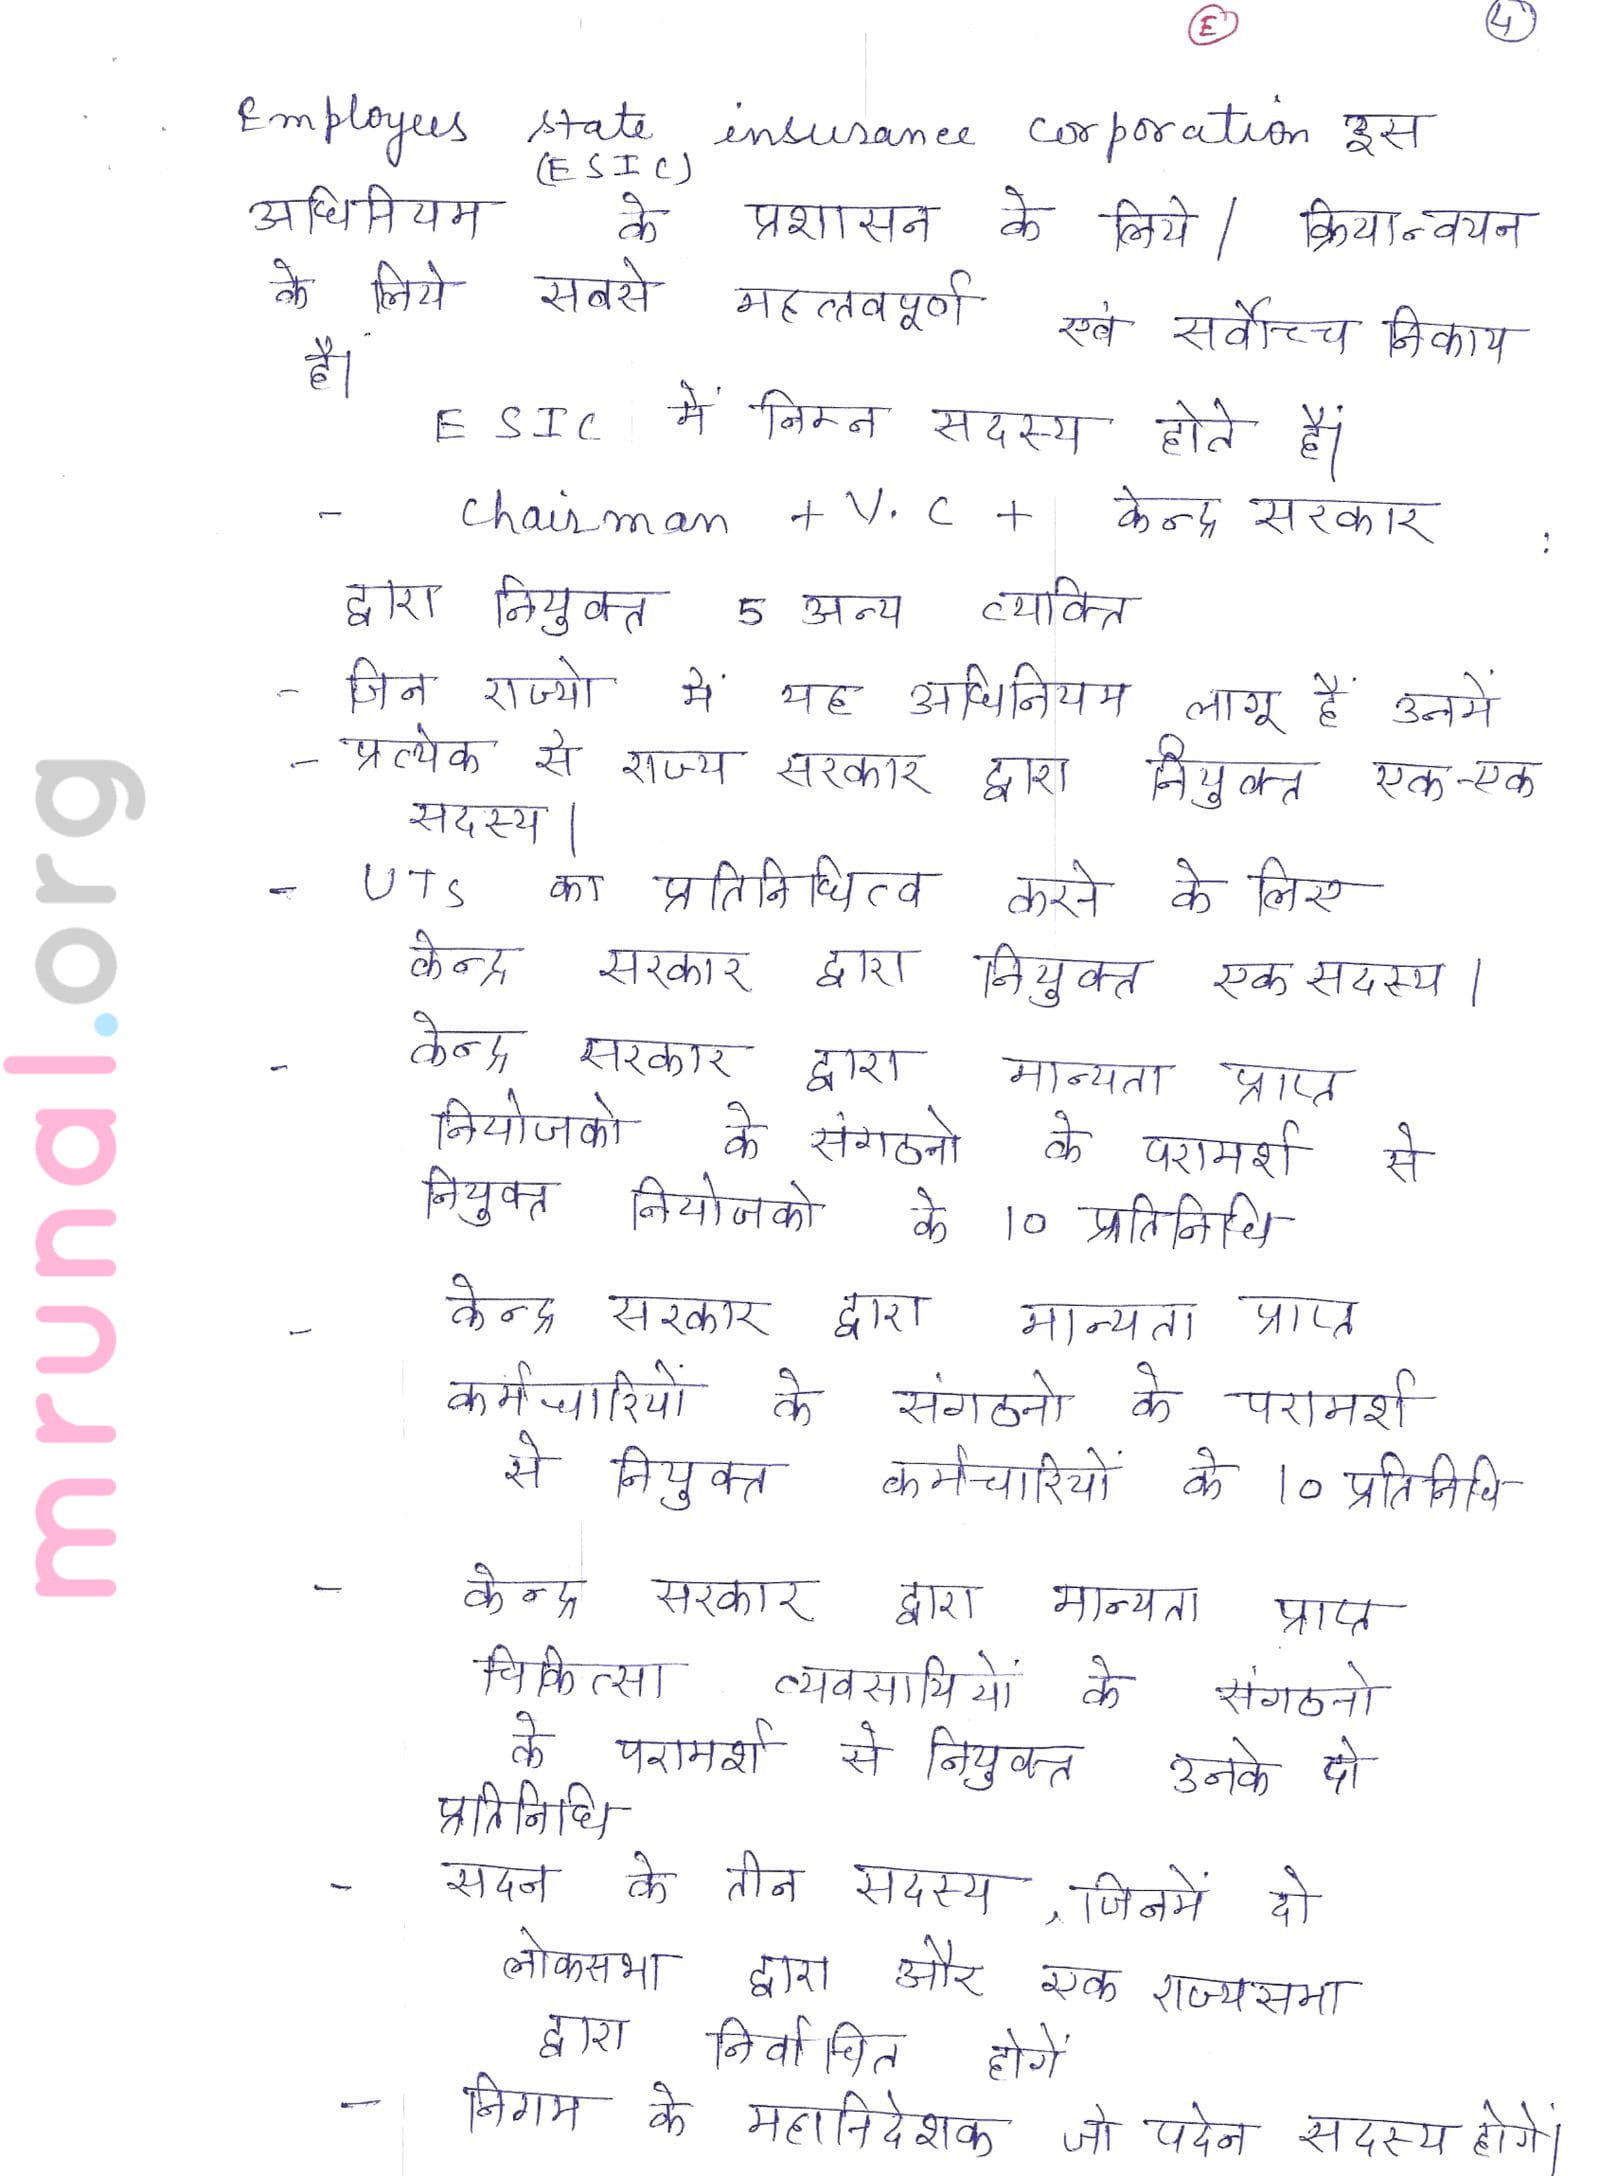 E
4
Employees state insurance corporation इस
(ESIC)
अधिनियम के प्रशासन के लिये / क्रियान्वयन
के लिये सबसे महत्तवपूर्ण एवं सर्वोच्च निकाय
है।
ESIC में निम्न सदस्य होते हैं।
- Chairman + V.C + केन्द्र सरकार
द्वारा नियुक्त 5 अन्य व्यक्ति
- जिन राज्यो में यह अधिनियम लागू हैं उनमें
- प्रत्येक से राज्य सरकार द्वारा नियुक्त एक-एक
सदस्य।
- UTs का प्रतिनिधित्व करने के लिए
केन्द्र सरकार द्वारा नियुक्त एक सदस्य।
- केन्द्र सरकार द्वारा मान्यता प्राप्त
नियोजको के संगठनो के परामर्श से
नियुक्त नियोजको के 10 प्रतिनिधि
- केन्द्र सरकार द्वारा मान्यता प्राप्त
कर्मचारियों के संगठनो के परामर्श
से नियुक्त कर्मचारियों के 10 प्रतिनिधि
- केन्द्र सरकार द्वारा मान्यता प्राप्त
चिकित्सा व्यवसायियों के संगठनो
के परामर्श से नियुक्त उनके दो
प्रतिनिधि
- सदन के तीन सदस्य, जिनमें दो
लोकसभा द्वारा और एक राज्यसभा
द्वारा निर्वाचित होगें
- निगम के महानिदेशक जो पदेन सदस्य होगें।
mrunal.org